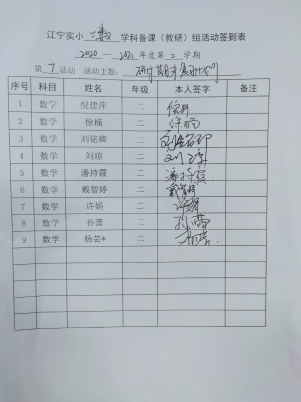 江宁实小 二数 学科备课（教研）组活动签到表
2020 — 2021 年度第 二 学期
第 7 活动 活动主题： 研讨期末复习计划
序号 科目 姓名 年级 本人签字 备注
1 数学 倪建萍 二
2 数学 徐楠 二 徐楠
3 数学 刘铭卿 二 刘铭卿
4 数学 刘琼 二 刘琼
5 数学 潘持霞 二 潘持霞
6 数学 戴智婷 二 戴智婷
7 数学 许娟 二 许娟
8 数学 孙蕾 二 孙蕾
9 数学 杨芸* 二